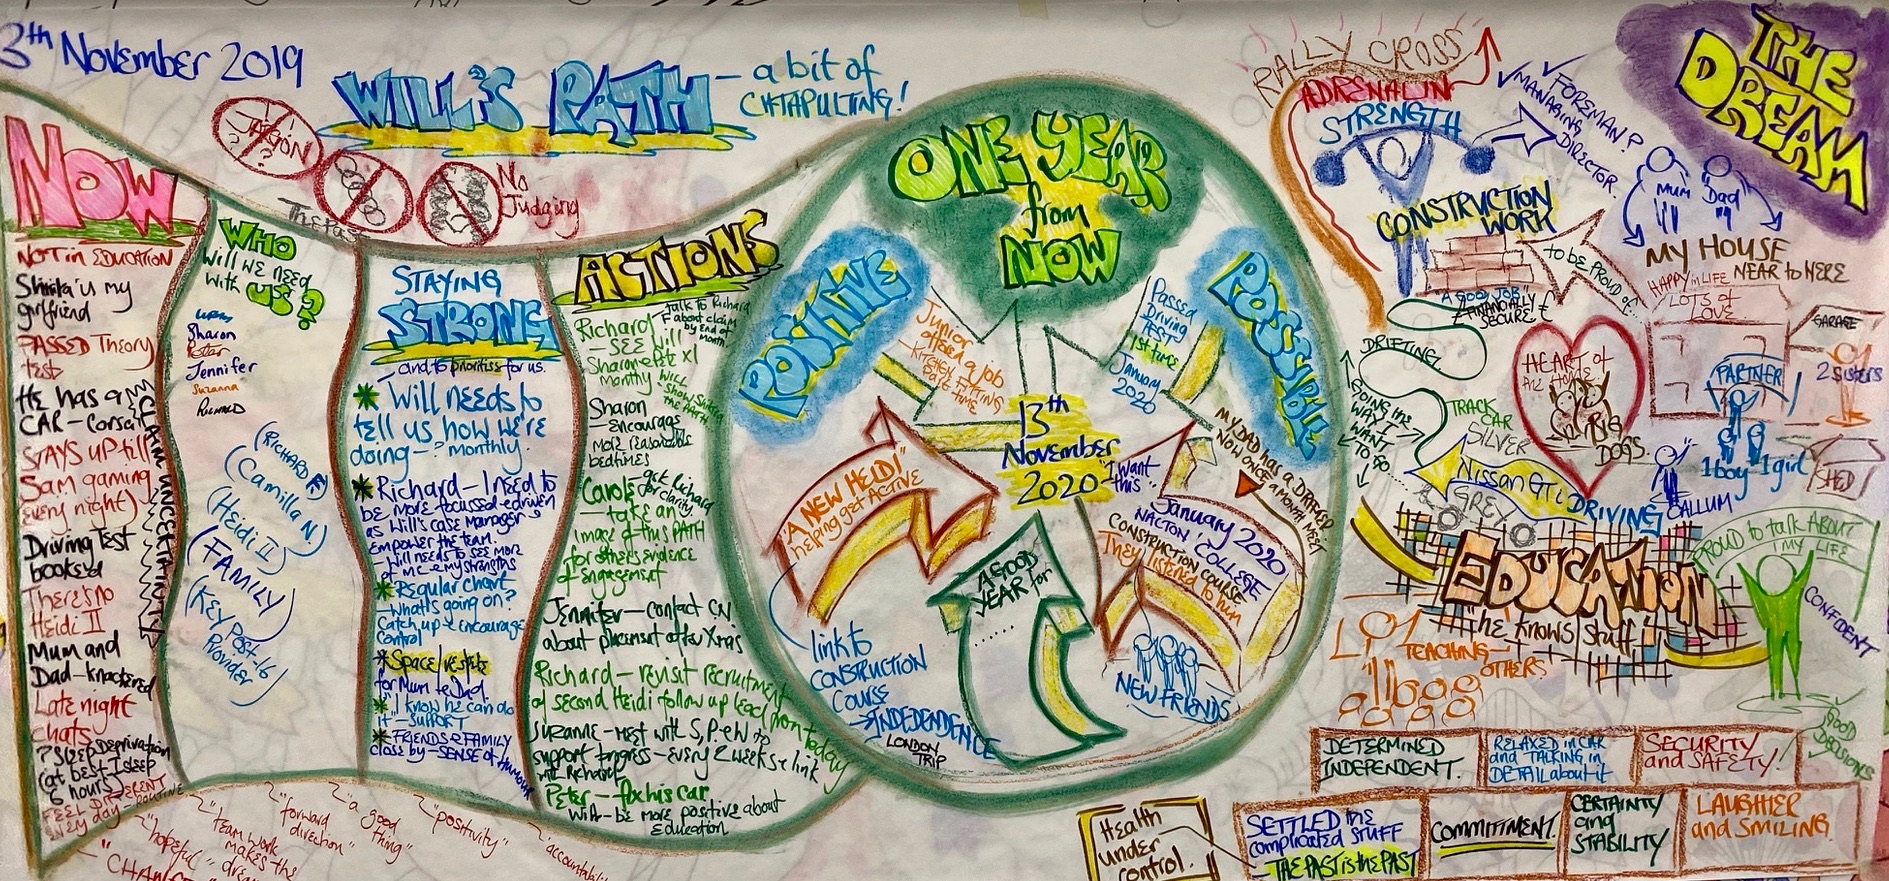 13th November 2019
WILL'S PATH
- a bit of
CATAPULTING!
NOW
NOT in EDUCATION
is my
girlfriend
PASSED Theory
test
He has a
CAR - Corsa
STAYS UP till
5am gaming
every night)
Driving Test
booked
There's no
Heidi II
Mum and
Dad - knackered
Late night
chats
? Sleep Deprivation
(at best I sleep
6 hours)
FEEL DIFFERENT
EVERY day - ROUTINE
CLAIM UNCERTAINTY
JARGON
No
Judging
WHO
Will we need
with US?
Sharon
Peter
Jennifer
Suzanna
Richard
(RICHARD F)
(Camilla N)
(Heidi II)
(FAMILY)
(Key Post-16
Provider)
STAYING
STRONG
- and to prioritise for us.
Will needs to
tell us how we're
doing - ? monthly.
Richard - I need to
be more focussed + driven
as Will's case manager
Empower the team.
Will needs to see more
of me + my strengths
Regular chart
- What's going on?
Catch up + encourage
control
Space/respite
for Mum + Dad.
"I know he can do
it" - SUPPORT
FRIENDS & FAMILY
close by - SENSE of HUMOUR
ACTIONS
Richard - talk to Richard
F about claim
by end of
month
- SEE Will
Sharon + Pete x1
monthly
Sharon
- encourage
more reasonable
bedtimes
Carole - get Richard
for clarity
- take an
image of this PATH
for others evidence
of engagement
Jennifer - contact CN
about placement after Xmas
Richard - revisit recruitment
of second Heidi follow up lead from today
Suzanne - meet with S, P + W to
support progress - every 2 weeks + link
with Richard
Peter - fix his car
Will - be more positive about
Education
ONE YEAR
from
NOW
POSITIVE
POSSIBLE
Junior
offered a job
- KITCHEN FITTING
PART TIME
Passed
Driving
TEST
1st time
January
2020
13th
November
2020
"I want
this"
MY DAD HAS A DRAGGED
NOW ONCE A MONTH MEET
"A NEW HEIDI"
helping get ACTIVE
January 2020
NACTON 'COLLEGE'
CONSTRUCTION COURSE
They listened to him
A GOOD
YEAR for
........
link to
CONSTRUCTION
COURSE
INDEPENDENCE
LONDON
TRIP
NEW FRIENDS
THE
DREAM
RALLY CROSS
ADRENALIN
STRENGTH
FOREMAN?
MANAGING
DIRECTOR.
CONSTRUCTION
WORK
A GOOD JOB
FINANCIALLY
SECURE
TO BE PROUD of...
Mum
Dad
MY HOUSE
NEAR to HERE
HAPPY in LIFE
LOTS of
LOVE
GARAGE
2 sisters
PARTNER
1 boy
1 girl
SHED
CALLUM
HEART of
the Home
BIG
DOGS.
DRIFTING
GOING the
WAY I
WANT
TO GO
TRACK
CAR
SILVER
Nissan GTi
GREY
DRIVING
EDUCATION
"he knows stuff"
TEACHING
OTHERS
PROUD to talk ABOUT
MY LIFE
CONFIDENT
GOOD
DECISIONS
DETERMINED
INDEPENDENT.
RELAXED in CAR
and TALKING in
DETAIL about it
SECURITY
and SAFETY!
Health
under
control.
SETTLED the
complicated STUFF
- THE PAST is the PAST
COMMITMENT.
CERTAINTY
and
STABILITY
LAUGHTER
and SMILING
"hopeful"
"team work
makes the
"forward
direction"
"a good
thing"
"positivity"